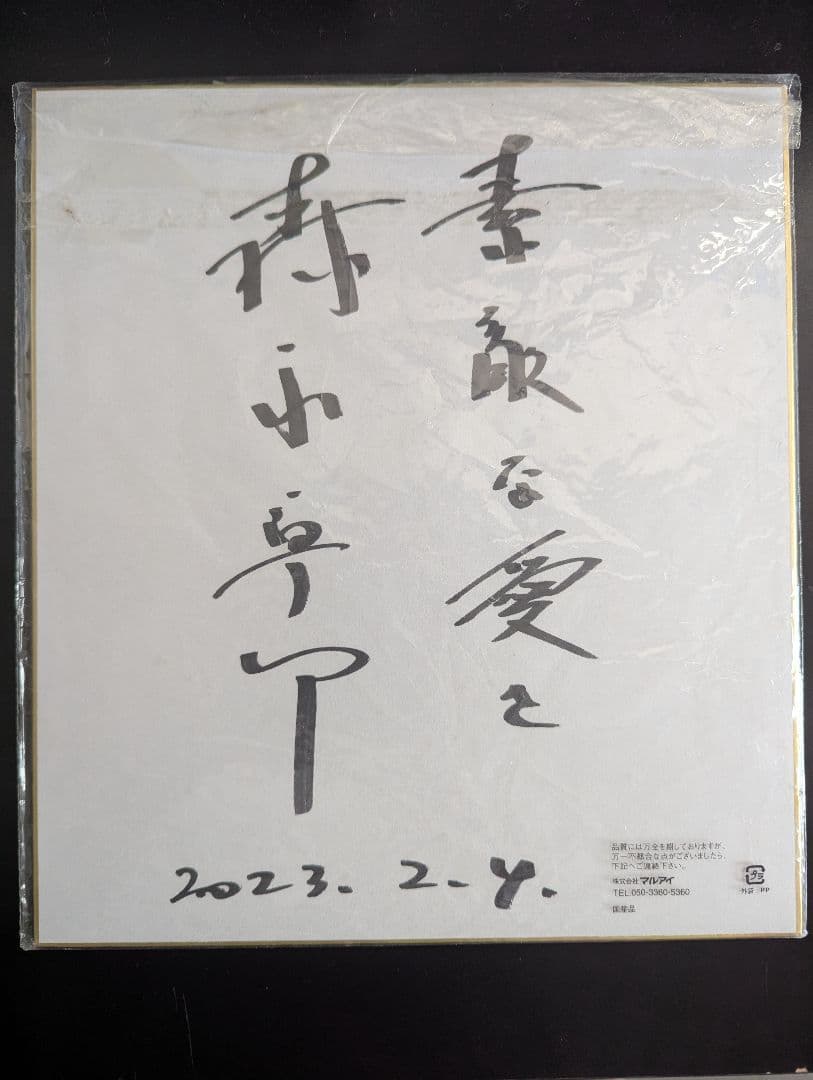 素敵な愛を
森永卓郎
2023. 2. 4.
品質には万全を期しておりますが、
万一不都合な点がございましたら、
下記へご連絡下さい。
株式会社 マルアイ
TEL.050-3360-5360
国産品
プラ
外袋:PP